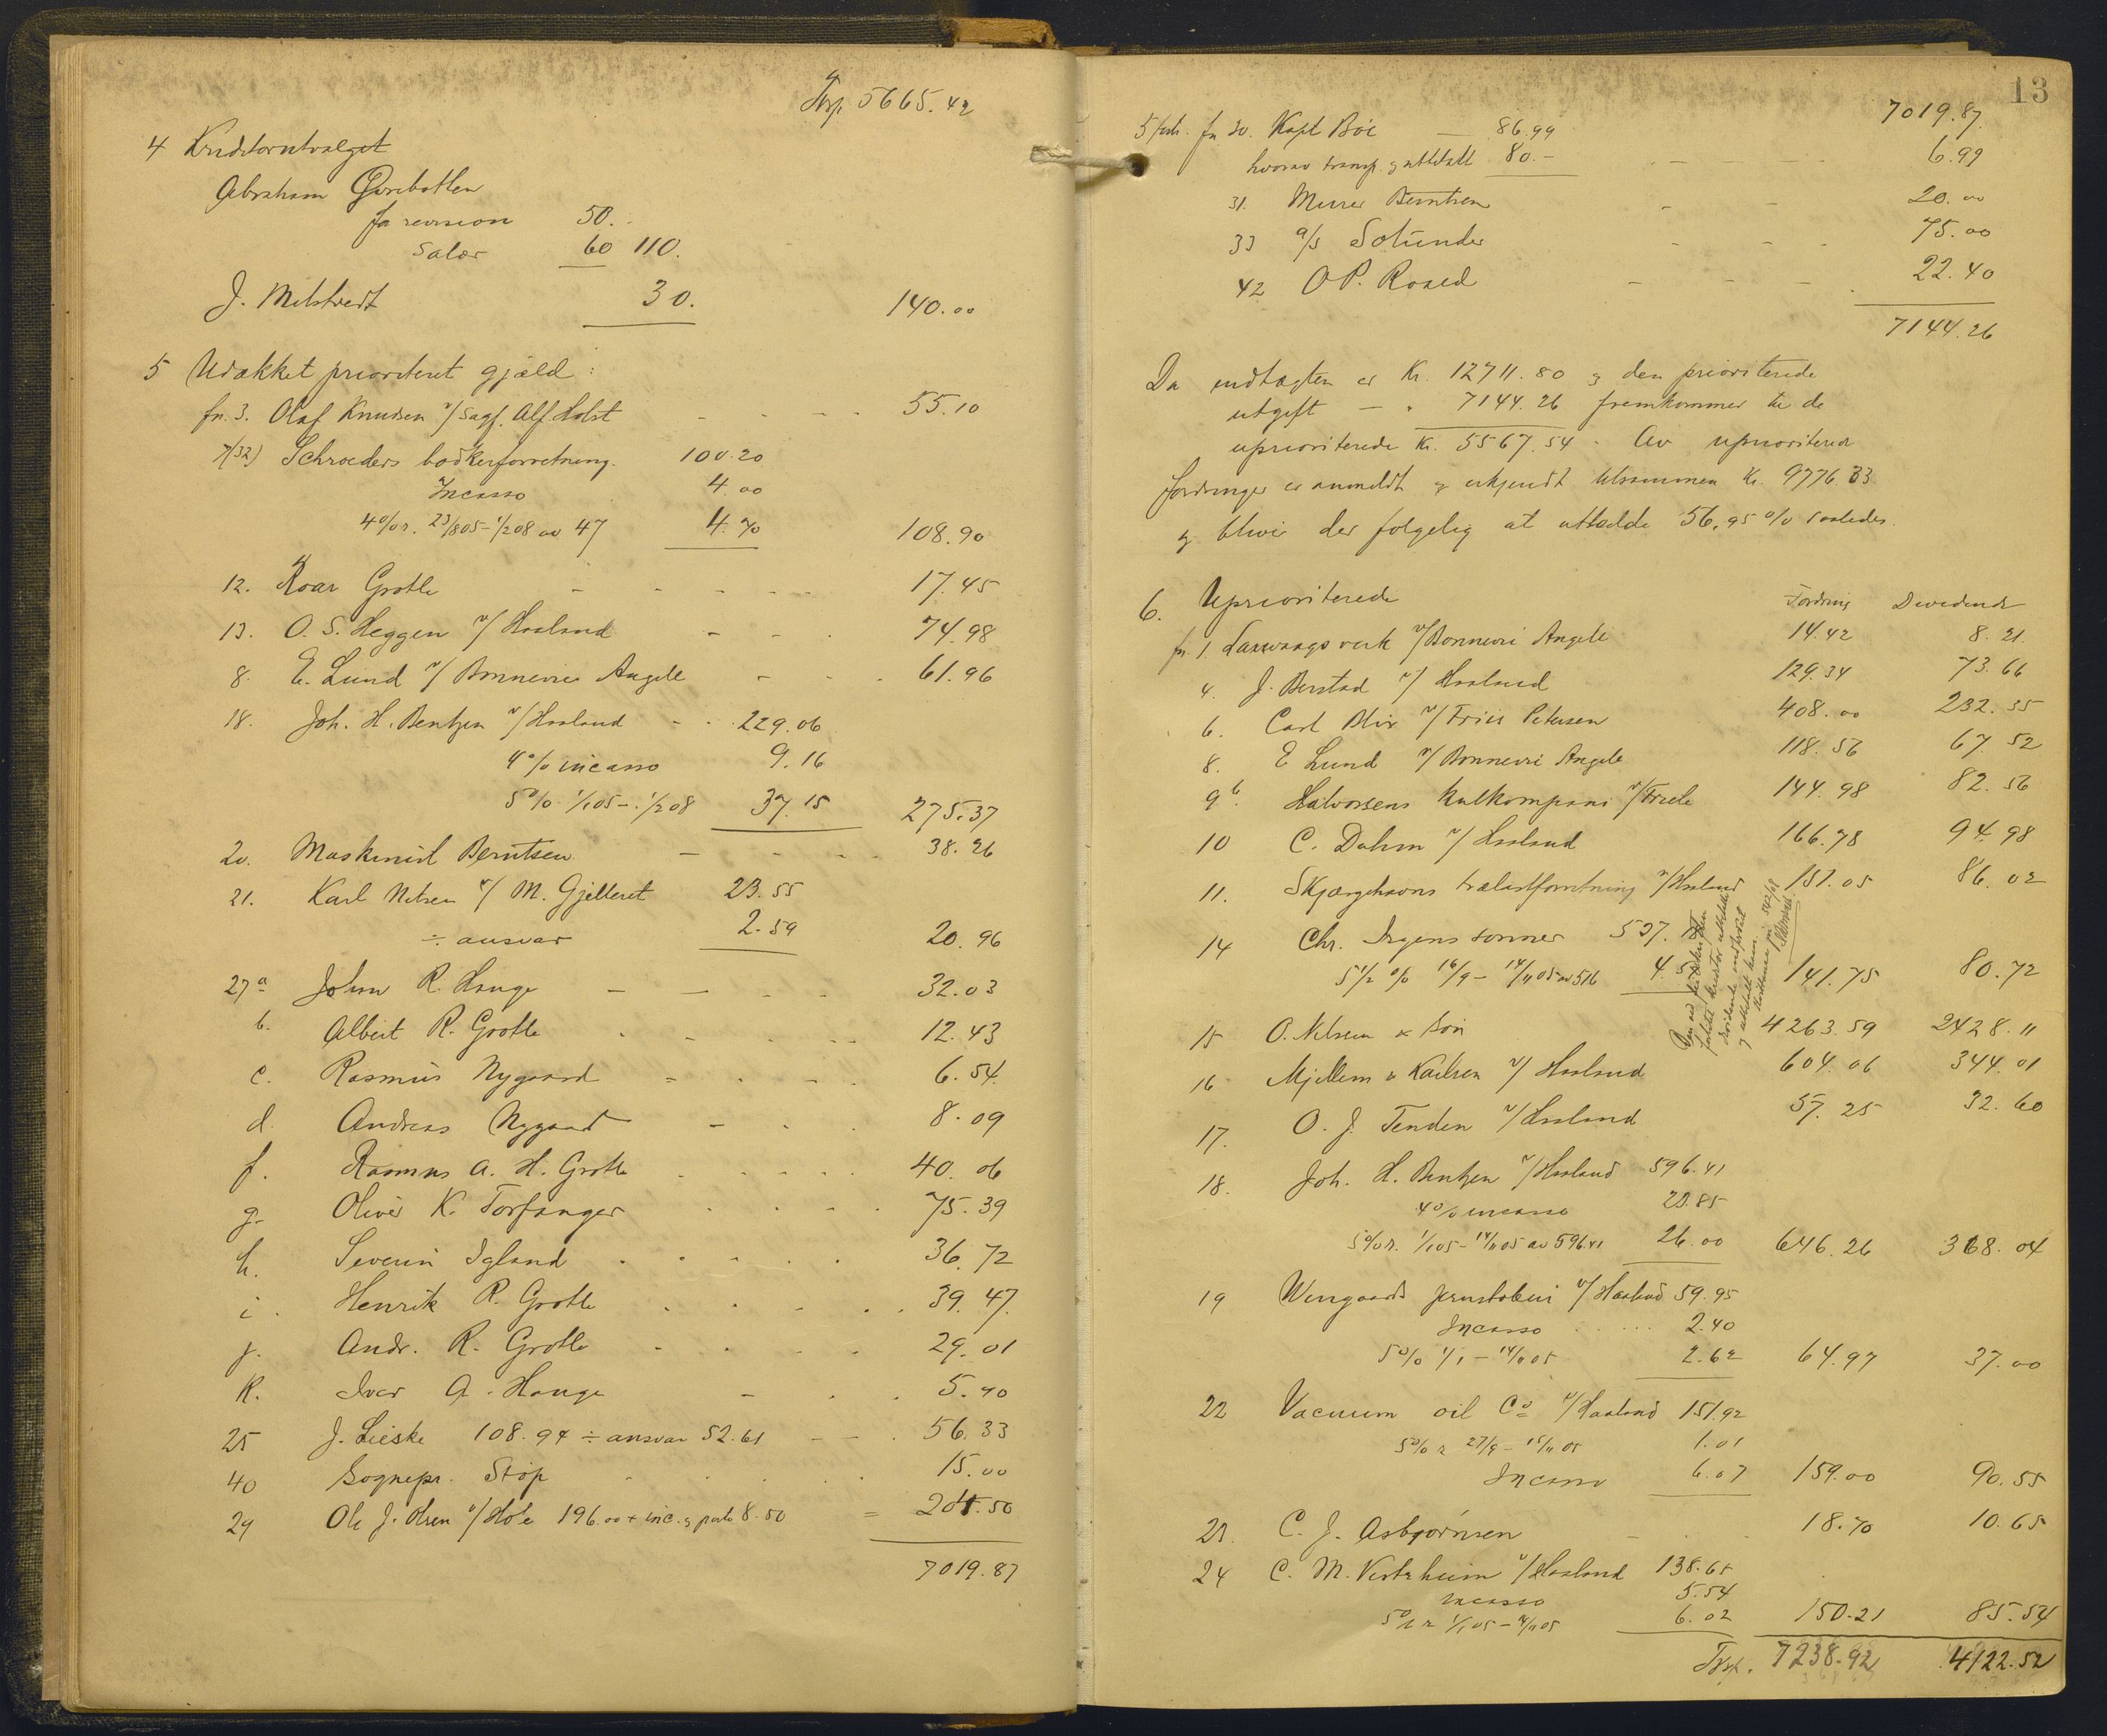 Trsp. 5665.42
4 Kreditorutvalget
Abraham
for revision 50.-
Salær 60 110.
J. Milstvedt 30. 140.00
5 Udækket prioritert gjæld :
fn. 3. Olaf Knudsen v/ Sagf. Alf. Holst - - - - 55.10
7/32) Schrøders bødkerforretning. 100.20
Incasso 4.00
4% r. 23/8 05 - 1/2 08 av 47 4.70 108.90
12. Roar Grotle - - - - - 17.45
13. O. S. Heggen v/ Haaland - - - 74.98
8. E. Lund v/ Bonnevie Angell - - - 61.96
18. Joh. H. Bentzen v/ Haaland - - 229.06
4% incasso 9.16
5% 1/1 05 - 1/2 08 37.15 275.37
20. Maskinist Berntsen - - - - 38.26
21. Karl Nilsen v/ M. Gjelleret 23.55
÷ ansvar 2.59 20.96
27a John R. Hauge - - - - 32.03
b. Albert R. Grotle - - - - 12.43
c. Rasmus Nygaard - - - - 6.54
d. Andreas Nygaard - - - 8.09
f. Rasmus A. H. Grotle - - - - 40.06
g. Oliver K. Torfanger - - - - 75.39
h. Severin Igland - - - - - 36.72
i. Henrik R. Grotle - - - - - 39.47.
j. Andr. R. Grotle - - - - 29.01
k. Ivar A. Hauge - - - 5.40
25 J. Lieske 108.94 ÷ ansvar 52.61 - - - 56.33
40 Sognepr. Støp - - - - 15.00
29 Ole J. Olsen v/ Hole 196.00 + inc. g porto 8.50 = 204.50
7019.87
13
7019.87.
5 forts. fn 30. Kapt Bøe - 86.99
hvorav transp. g utbetalt 80.- - - - 6.99
31. Murer Berntsen - - 20.00
33 a/s Solunder - - - 75.00
42 O P. Roaed - - - - 22.40
7144.26
Da indtægten er Kr. 12711.80 g den prioriterede
utgift - " 7144.26 fremkommer til de
uprioriterede Kr. 5567.54 - Av uprioriterede
fordringer er anmeldt g erkjendt tilsammen Kr. 9776.33
g bliver der følgelig at utlodde 56,95 % saaledes.
6. Uprioriterede Fordring Dividende
fn. 1. Laxevaags verk v/ Bonnevie Angell 14.42 8.21
4. J. Berstad v/ Haaland 129.34 73.66
6. Carl Blix v/ Friis Petersen 408.00 232.35
8. E Lund v/ Bonnevie Angell 118.56 67.52
9b. Halvorsens kulkompani v/ Friele 144.98 82.56
10 C. Dahm v/ Haaland 166.78 94.98
11. Skjærgehavns trælastforretning v/ Haaland 151.05 86.02
14 Chr. Irgens sønner 537.
5 1/2 % 16/9 - 14/11 05 av 516 4. 141.75 80.72
15 O. Nilsen & Søn 4263.59 2428.11
16 Mjellem & Karlsen v/ Haaland 604.06 344.01
17. O. J. Tenden v/ Haaland 57.25 32.60
18. Joh. H. Bentzen v/ Haaland 596.41
4% incasso 23.85
5% r. 1/1 05 - 14/11 05 av 596.41 26.00 646.26 368.04
19 Wingaards jernstøberi v/ Haaland 59.95
Incasso 2.40
5% 1/1 - 14/11 05 2.62 64.97 37.00
22 Vacuum oil Co v/ Haaland 151.92
5% r 27/9 - 15/11 05 1.01
Incasso 6.07 159.00 90.55
23. C. J. Asbjørnsen - - - 18.70 10.65
24 C. M. Vestrheim v/ Haaland 138.65
Incasso 5.54
5% r 1/1 05 - 14/11 05 6.02 150.21 85.54
Trsp. 7238.92 4122.52